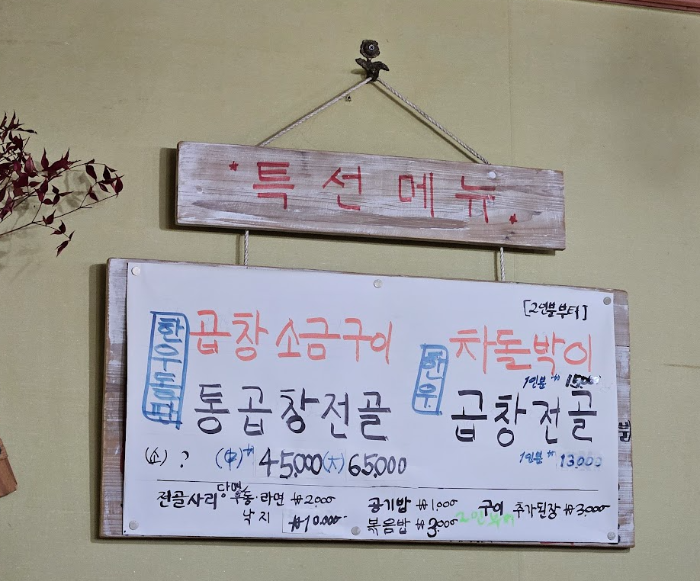 *특선메뉴*
[2인분부터]
한우특판
곱창 소금구이
통곱창전골
(小) ? (中)₩45,000 (大)65,000
한우
차돌박이
1인분 ₩ 15,000
곱창전골
1인분 ₩ 13,000
전골사리 당면 우동·라면 ₩2,000
낙지 ₩10,000
공기밥 ₩1,000
볶음밥 ₩3,000 2인부터
구이 추가된장 ₩3,000
분